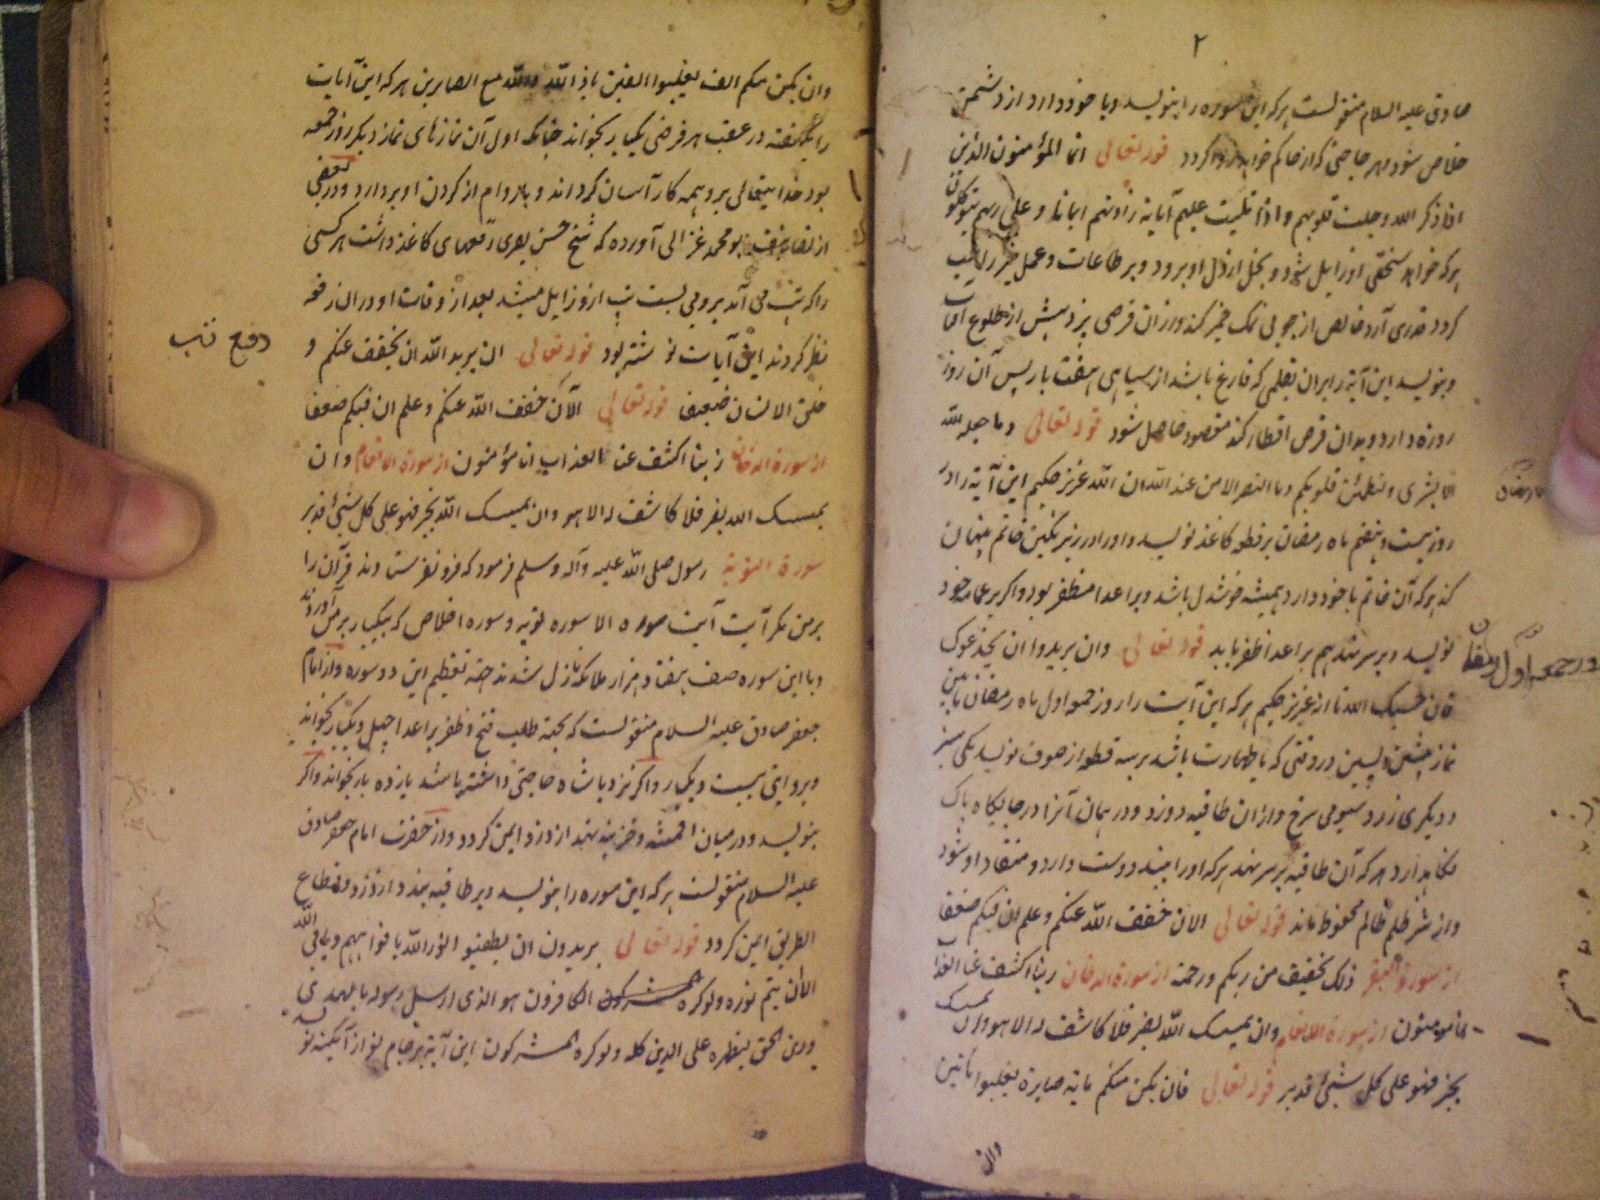 ۲
صادق علیه السلام منقولست هرکه این سوره را بنویسد و با خود دارد از دشمن
خلاص شود و بهر حاجتی که از حاکم خواهد روا گردد قوله تعالی انما المؤمنون الذین
اذا ذکر الله وجلت قلوبهم و اذا تلیت علیهم آیاته زادتهم ایمانا و علی ربهم یتوکلون
هرکه خواهد سختی او زایل شود و بخل از دل او برود و بر طاعات و عمل خیر راغب
کردد قدری آرد خالص از جو بی نمک خمیر کند و از ان قرصی پزد پیش از طلوع آفتاب
و بنویسد این آیة را بران بقلمی که فارغ باشد از سیاهی هفت بار پس آن روز
روزه دارد و بدان قرص افطار کند مقصود حاصل شود قوله تعالی و ما جعله الله
الا بشری و لتطمئن قلوبکم و ما النصر الا من عند الله ان الله عزیز حکیم این آیة را در
روز بیست و هفتم ماه رمضان بر قطعه کاغذ نویسد و او را در زیر نگین خاتم پنهان
کند هرکه آن خاتم با خود دارد همیشه خوشدل باشد و بر اعدا مظفر بود و اکر بر عمامه خود
نویسد و بر سر نهد هم بر اعدا ظفر یابد قوله تعالی وان یریدوا ان یخدعوک
در جمعه اول رمضان
فان حسبک الله تا انه عزیز حکیم هرکه این آیت را روز جمعه اول ماه رمضان مابین
نماز پیشین و پسین در وقتی که با طهارت باشد بر سه قطعه از صوف نویسد یکی سبز
و دیکری زرد سیومی سرخ و از ان طاقیه دوزد و در همان آنرا در جایگاه پاک
نگاهدارد هرکه آن طاقیه بر سر نهد هرکه او را بیند دوست دارد و منقاد او شود
و از شر ظلم ظالم محفوظ ماند قوله تعالی الان خفف الله عنکم و علم ان فیکم ضعفا
از سورة البقر ذلک تخفیف من ربکم و رحمة از سورة الدخان ربنا اکشف عنا العذاب
انا مؤمنون از سورة الانعام وان یمسسک الله بضر فلا کاشف له الا هو وان یمسسک
بخیر فهو علی کل شیئ قدیر قوله تعالی فان یکن منکم مایة صابرة یغلبوا ماتین
وان
وان یکن منکم الف یغلبوا الفین باذن الله والله مع الصابرین هرکه این آیات
را یکهفته در عقب هر فرضی یکبار بخواند چنانکه اول آن نمازهای نماز دیکر روز جمعه
بود خدایتعالی برو همه کار آسان کرداند و بار وام از کردن او بردارد و در بعضی
از تصانیف ابو محمد غزالی آورده که شیخ حسن بصری رقعهای کاغذ داشت هر کسی
را که تب می آمد برو می بست تب ازو زایل میشد بعد از وفات او در ان رقعه
نظر کردند این آیات نوشته بود قوله تعالی ان یرید الله ان یخفف عنکم و
دفع تب
خلق الانسان ضعیفا قوله تعالی الآن خفف الله عنکم و علم ان فیکم ضعفا
از سورة الدخان ربنا اکشف عنا العذاب انا مؤمنون از سورة الانعام وان
یمسسک الله بضر فلا کاشف له الا هو وان یمسسک الله بخیر فهو علی کل شیئ قدیر
سورة التوبة رسول صلی الله علیه وآله وسلم فرمود که فرو نفرستادند قرآن را
بر من مکر آیت آیت سوره الا سوره توبه و سوره اخلاص که بیکبار بر من آوردند
و با این سوره صف هفتاد هزار ملائکه نازل شدند جهة تعظیم این دو سوره و از امام
جعفر صادق علیه السلام منقولست که بجهة طلب فتح و ظفر بر اعدا چهل و یکبار بخواند
و بروایتی بیست و یکبار و اکر نزد پادشاه حاجتی داشته باشد یازده بار بخواند و اکر
بنویسد و در میان اقمشه و خزینه نهد از دزد ایمن کردد و از حضرت امام جعفر صادق
علیه السلام منقولست هرکه این سوره را بنویسد و بر طاقیه نهد و دارد از دزد و قطاع
الطریق ایمن کردد قوله تعالی یریدون ان یطفئوا نور الله بافواههم و یابی الله
الا ان یتم نوره و لو کره الکافرون هو الذی ارسل رسوله بالهدی
و دین الحق لیظهره علی الدین کله و لو کره المشرکون این آیة بر جام نو از آبکینه نو